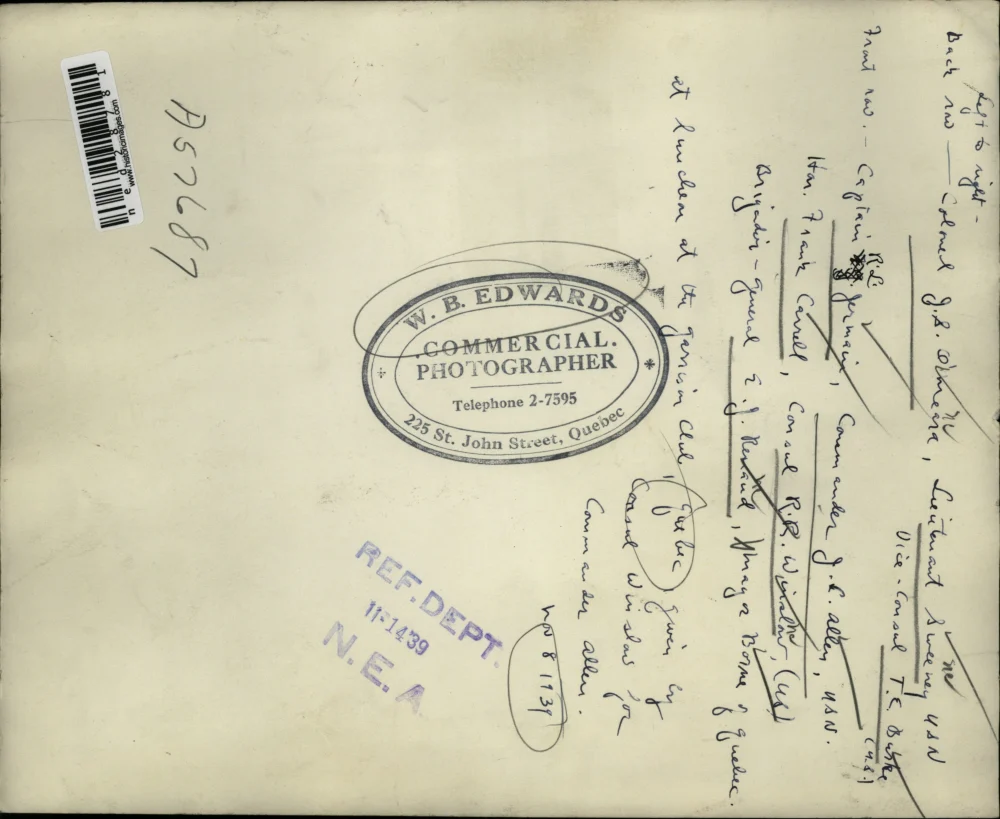 Left to right -
Back row — Colonel J.S. O'Meara, Lieutenant Sweeney USN
Vice-Consul T.E. Burke (U.S.)
Front row. - Captain R.L. Germain, Commander J.C. Allen, USN.
Hon. Frank Carrell, Consul R.R. Winslow, (US)
Brigadier-general E.J. Renaud, Mayor Borne of Quebec.
at luncheon at the garrison club, Quebec, given by
Consul Winslow for
Commander Allen.
Nov 8 1939
W. B. EDWARDS
.COMMERCIAL.
PHOTOGRAPHER
Telephone 2-7595
225 St. John Street, Quebec
REF. DEPT.
11-14 39
N. E. A
A57687
www.historicimages.com